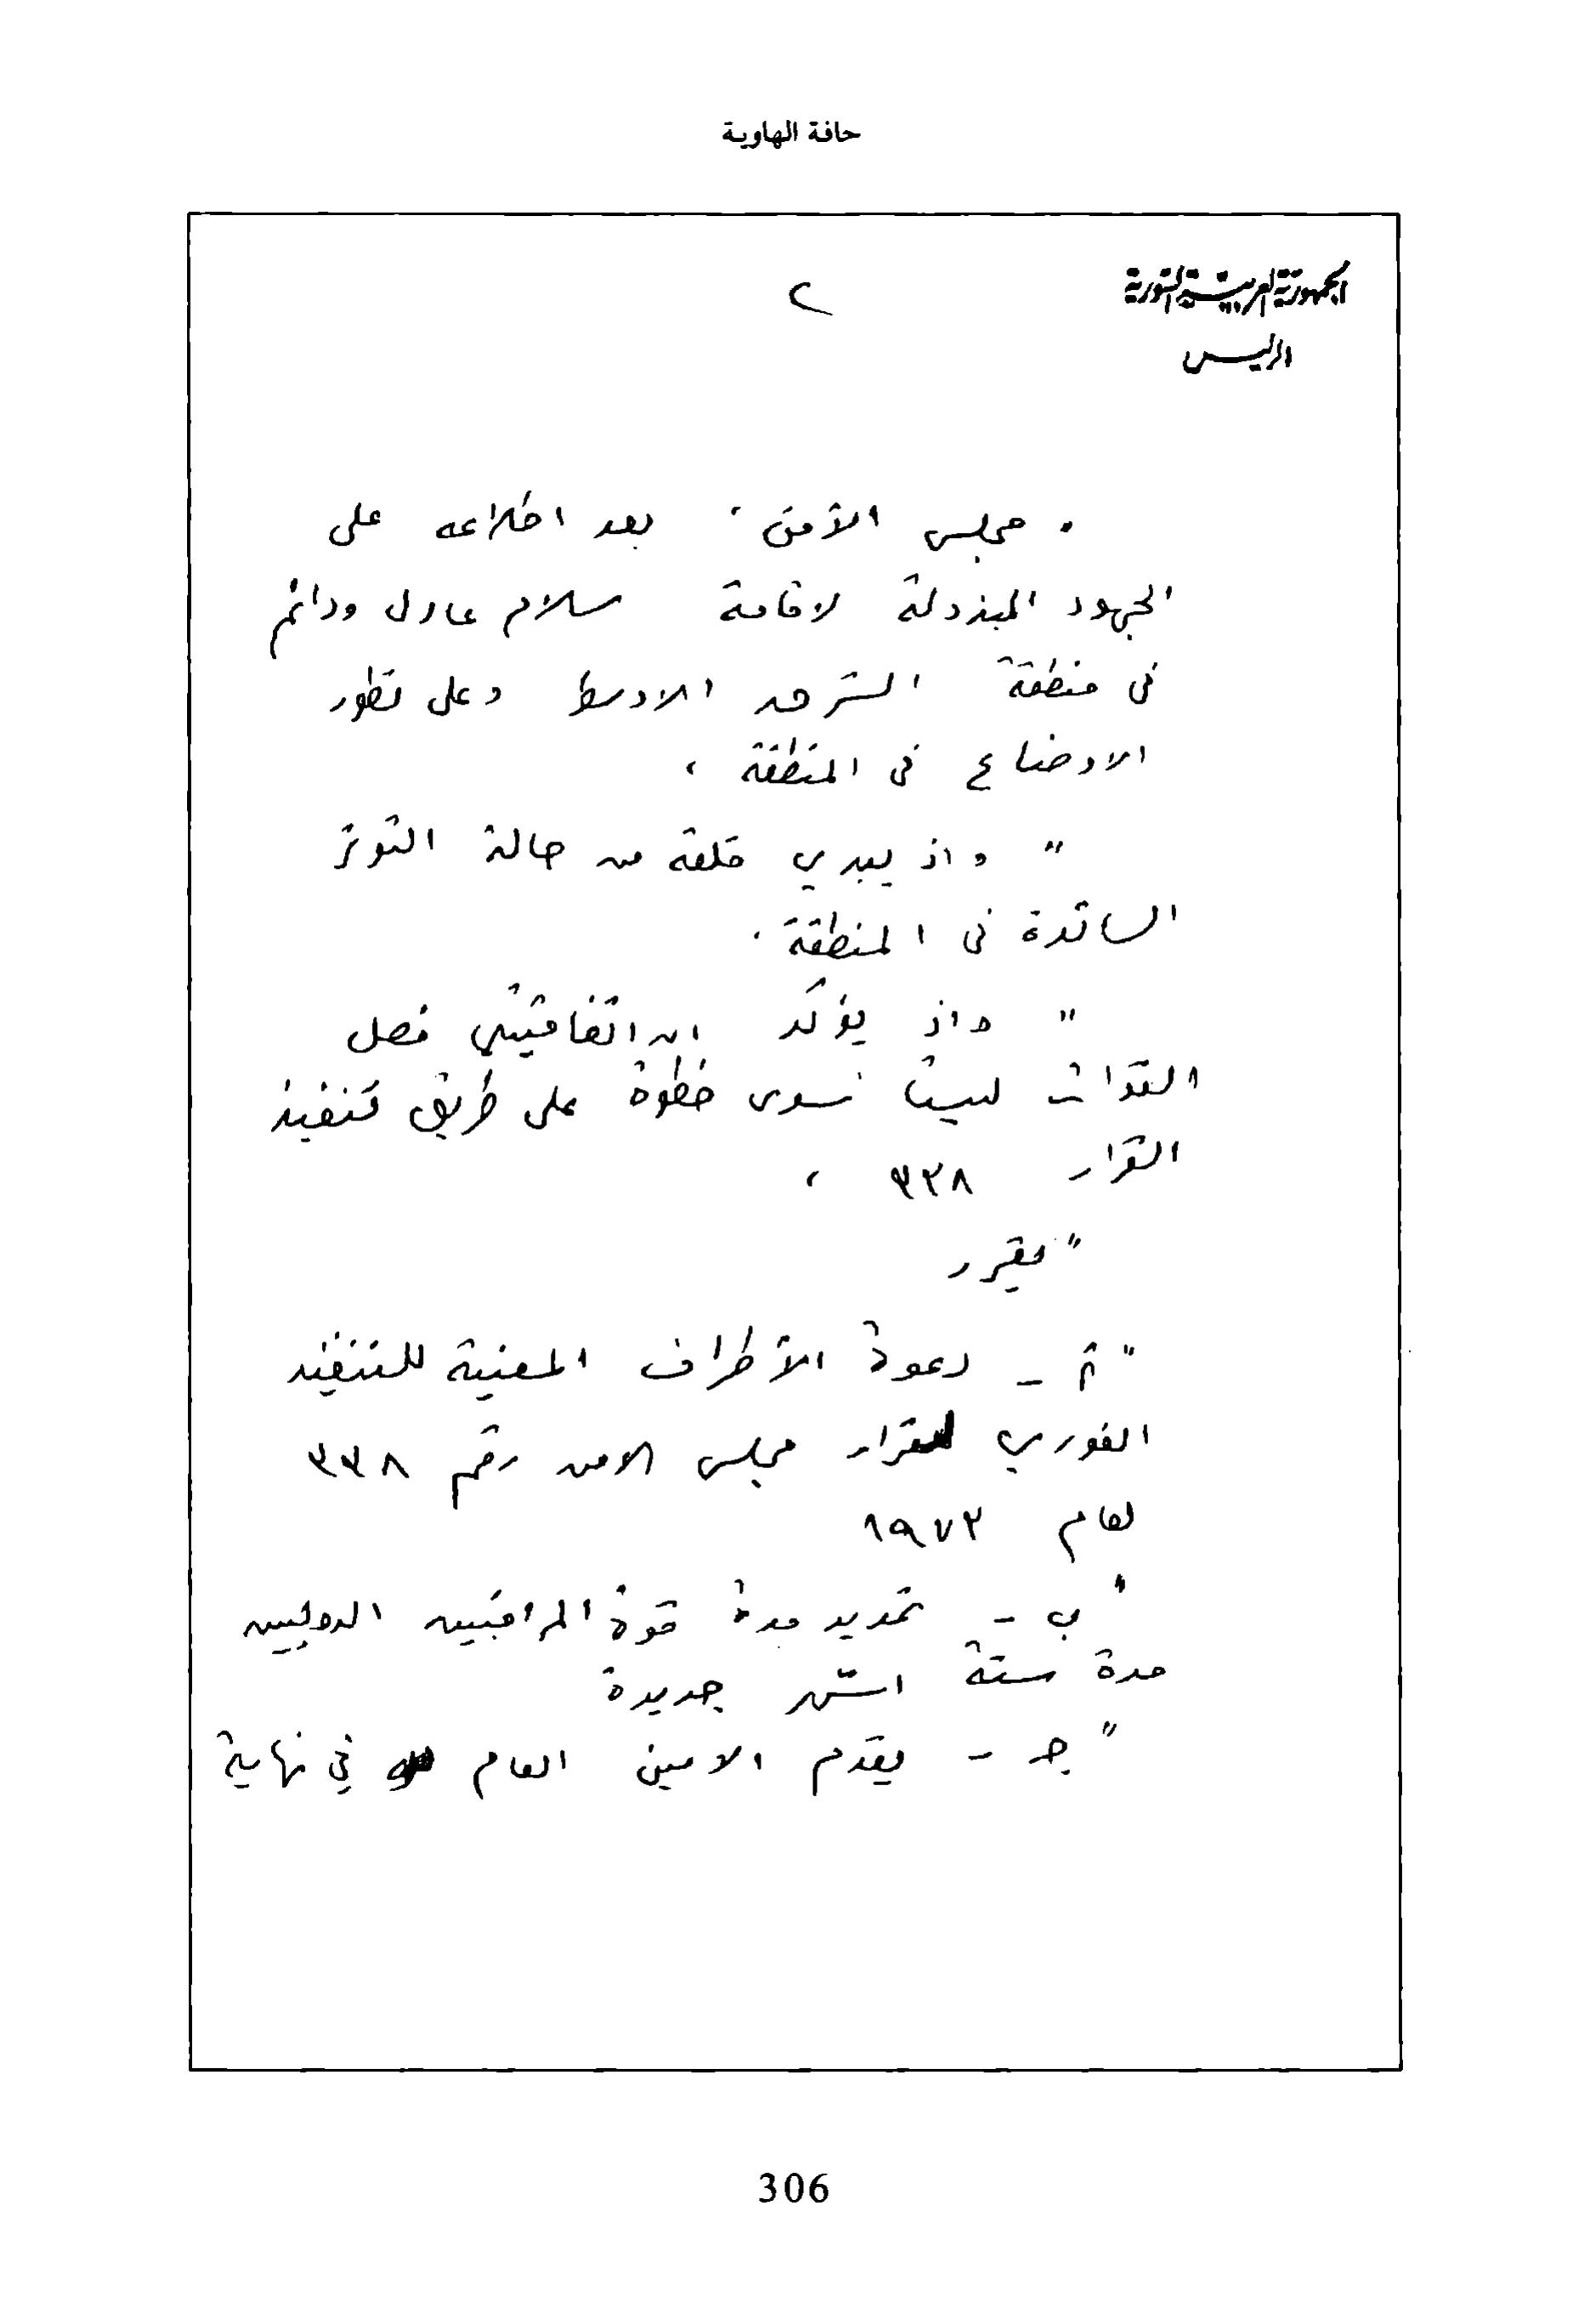 حافة الهاوية
الجمهورية العربية السورية
٢
الرئيس
" مجلس الأمن، بعد اطلاعه على
الجهود المبذولة لاقامة سلام عادل ودائم
في منطقة الشرق الاوسط وعلى تطور
الاوضاع في المنطقة ،
" واذ يبدي قلقه من حالة التوتر
السائدة في المنطقة .
" واذ يؤكد ان اتفاقيتي فصل
القوات ليست سوى خطوة على طريق تنفيذ
القرار ٣٣٨ ،
" يقرر
" أ - دعوة الأطراف المعنية للتنفيذ
الفوري لقرار مجلس الامن رقم ٣٣٨
لعام ١٩٧٣
" ب - تمديد مدة قوة المراقبين الدوليين
مدة ستة اشهر جديدة
" جـ - يقدم الامين العام في نهاية
306